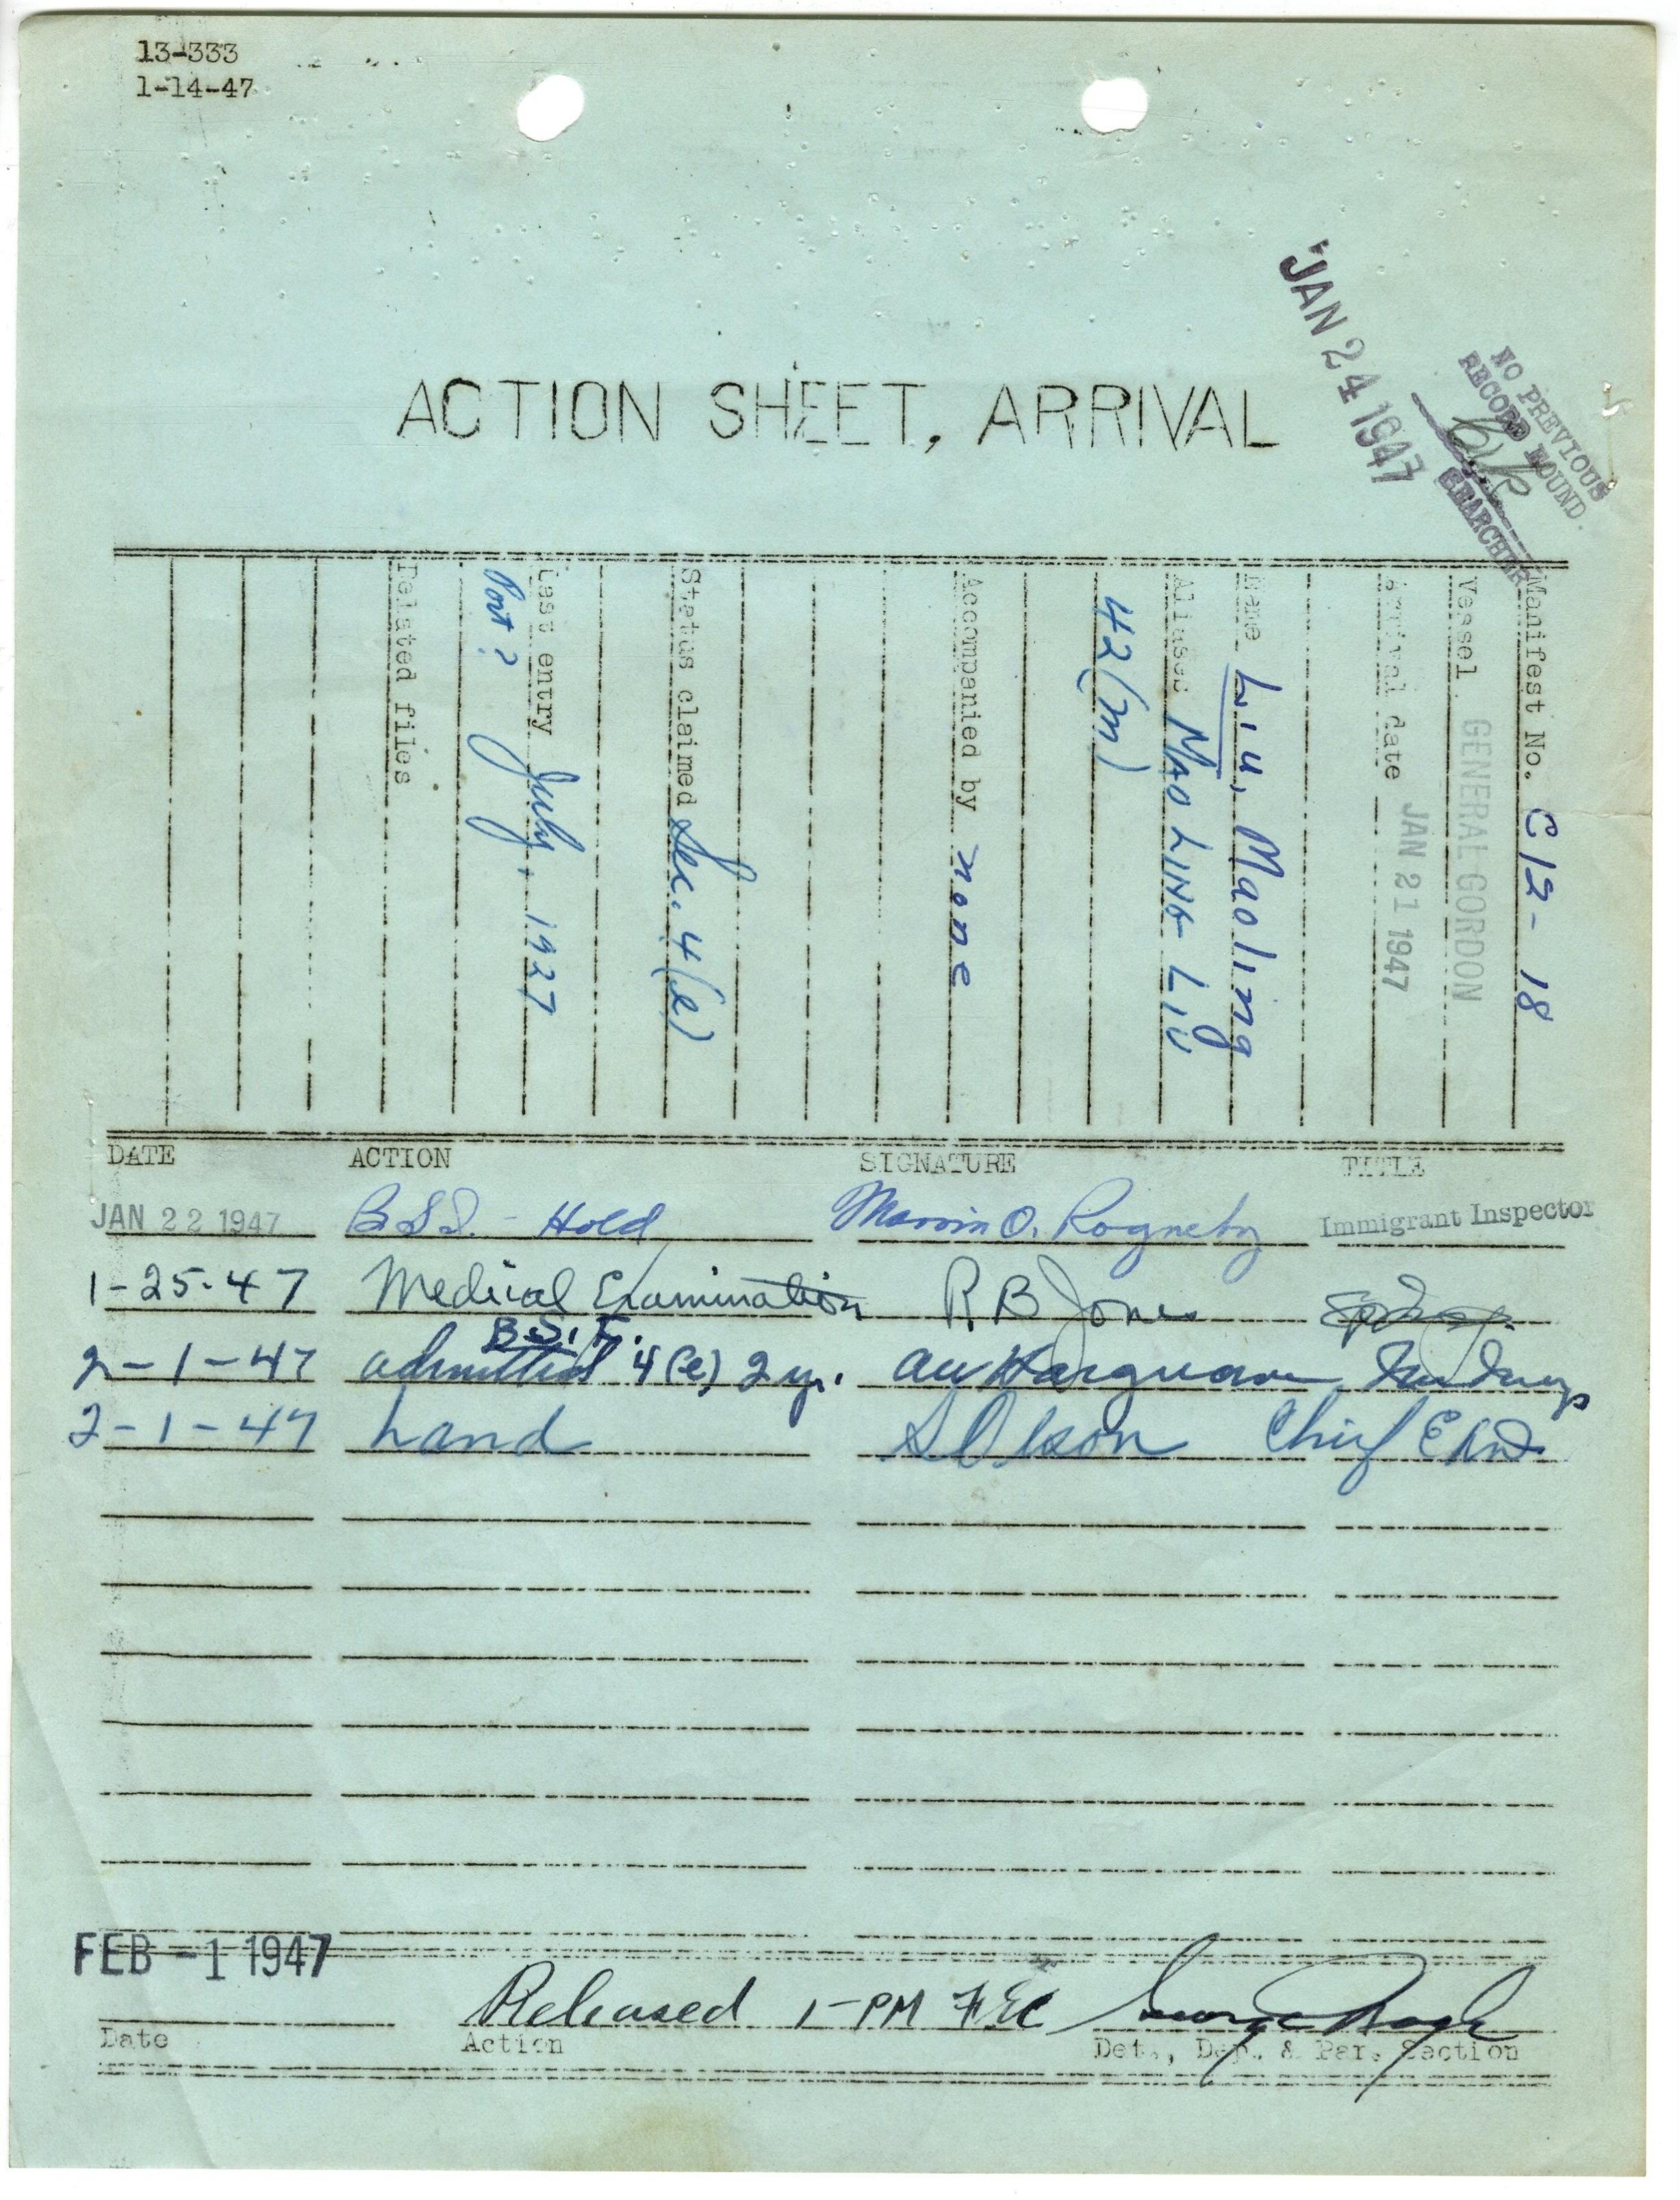 13-333
1-14-47
JAN 24 1947
NO PREVIOUS
RECORD FOUND.
SEARCHER
ACTION SHEET, ARRIVAL
Manifest No. C12-18
Vessel GENERAL GORDON
Arrival date JAN 21 1947
Name Liu, Maoling
Aliases MAO LING LIU
42(m)
Accompanied by none
Status claimed Sec. 4(e)
Last entry July, 1927
Port?
Related files
DATE ACTION SIGNATURE TITLE
JAN 22 1947 B.S.I. - Hold Marvin O. Rogneby Immigrant Inspector
1-25-47 Medical Examination R B Jones
B.S.I.
2-1-47 admitted 4(e) 2 yr.
2-1-47 Land S Olson Chief
FEB -1 1947
Released 1-PM
Date Action Det., Dep. & Par. Section